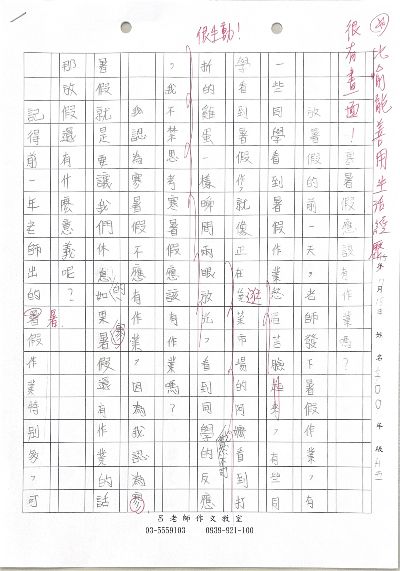 比喻能善用生活經歷
很有畫面！
很生動！
暑假應該有作業嗎？
放暑假的前一天，老師發下暑假作業，有
一些同學看到作業，愁 臉 ，有些同
學看到暑假作業就像正在逛菜市場的阿嬤看到打
折的雞蛋一樣 兩眼放光，看到同學的反應
，我不禁思考寒暑假應該有作業嗎？
我認為寒暑假不應有作業，因為我認為寒
暑假就是要讓我們休息的 如果暑假還有作業的話
那放假還有什麼意義呢？
記得前一年老師出的暑假作業特別多，可
呂老師作文教室
03-5559103 0939-921-100